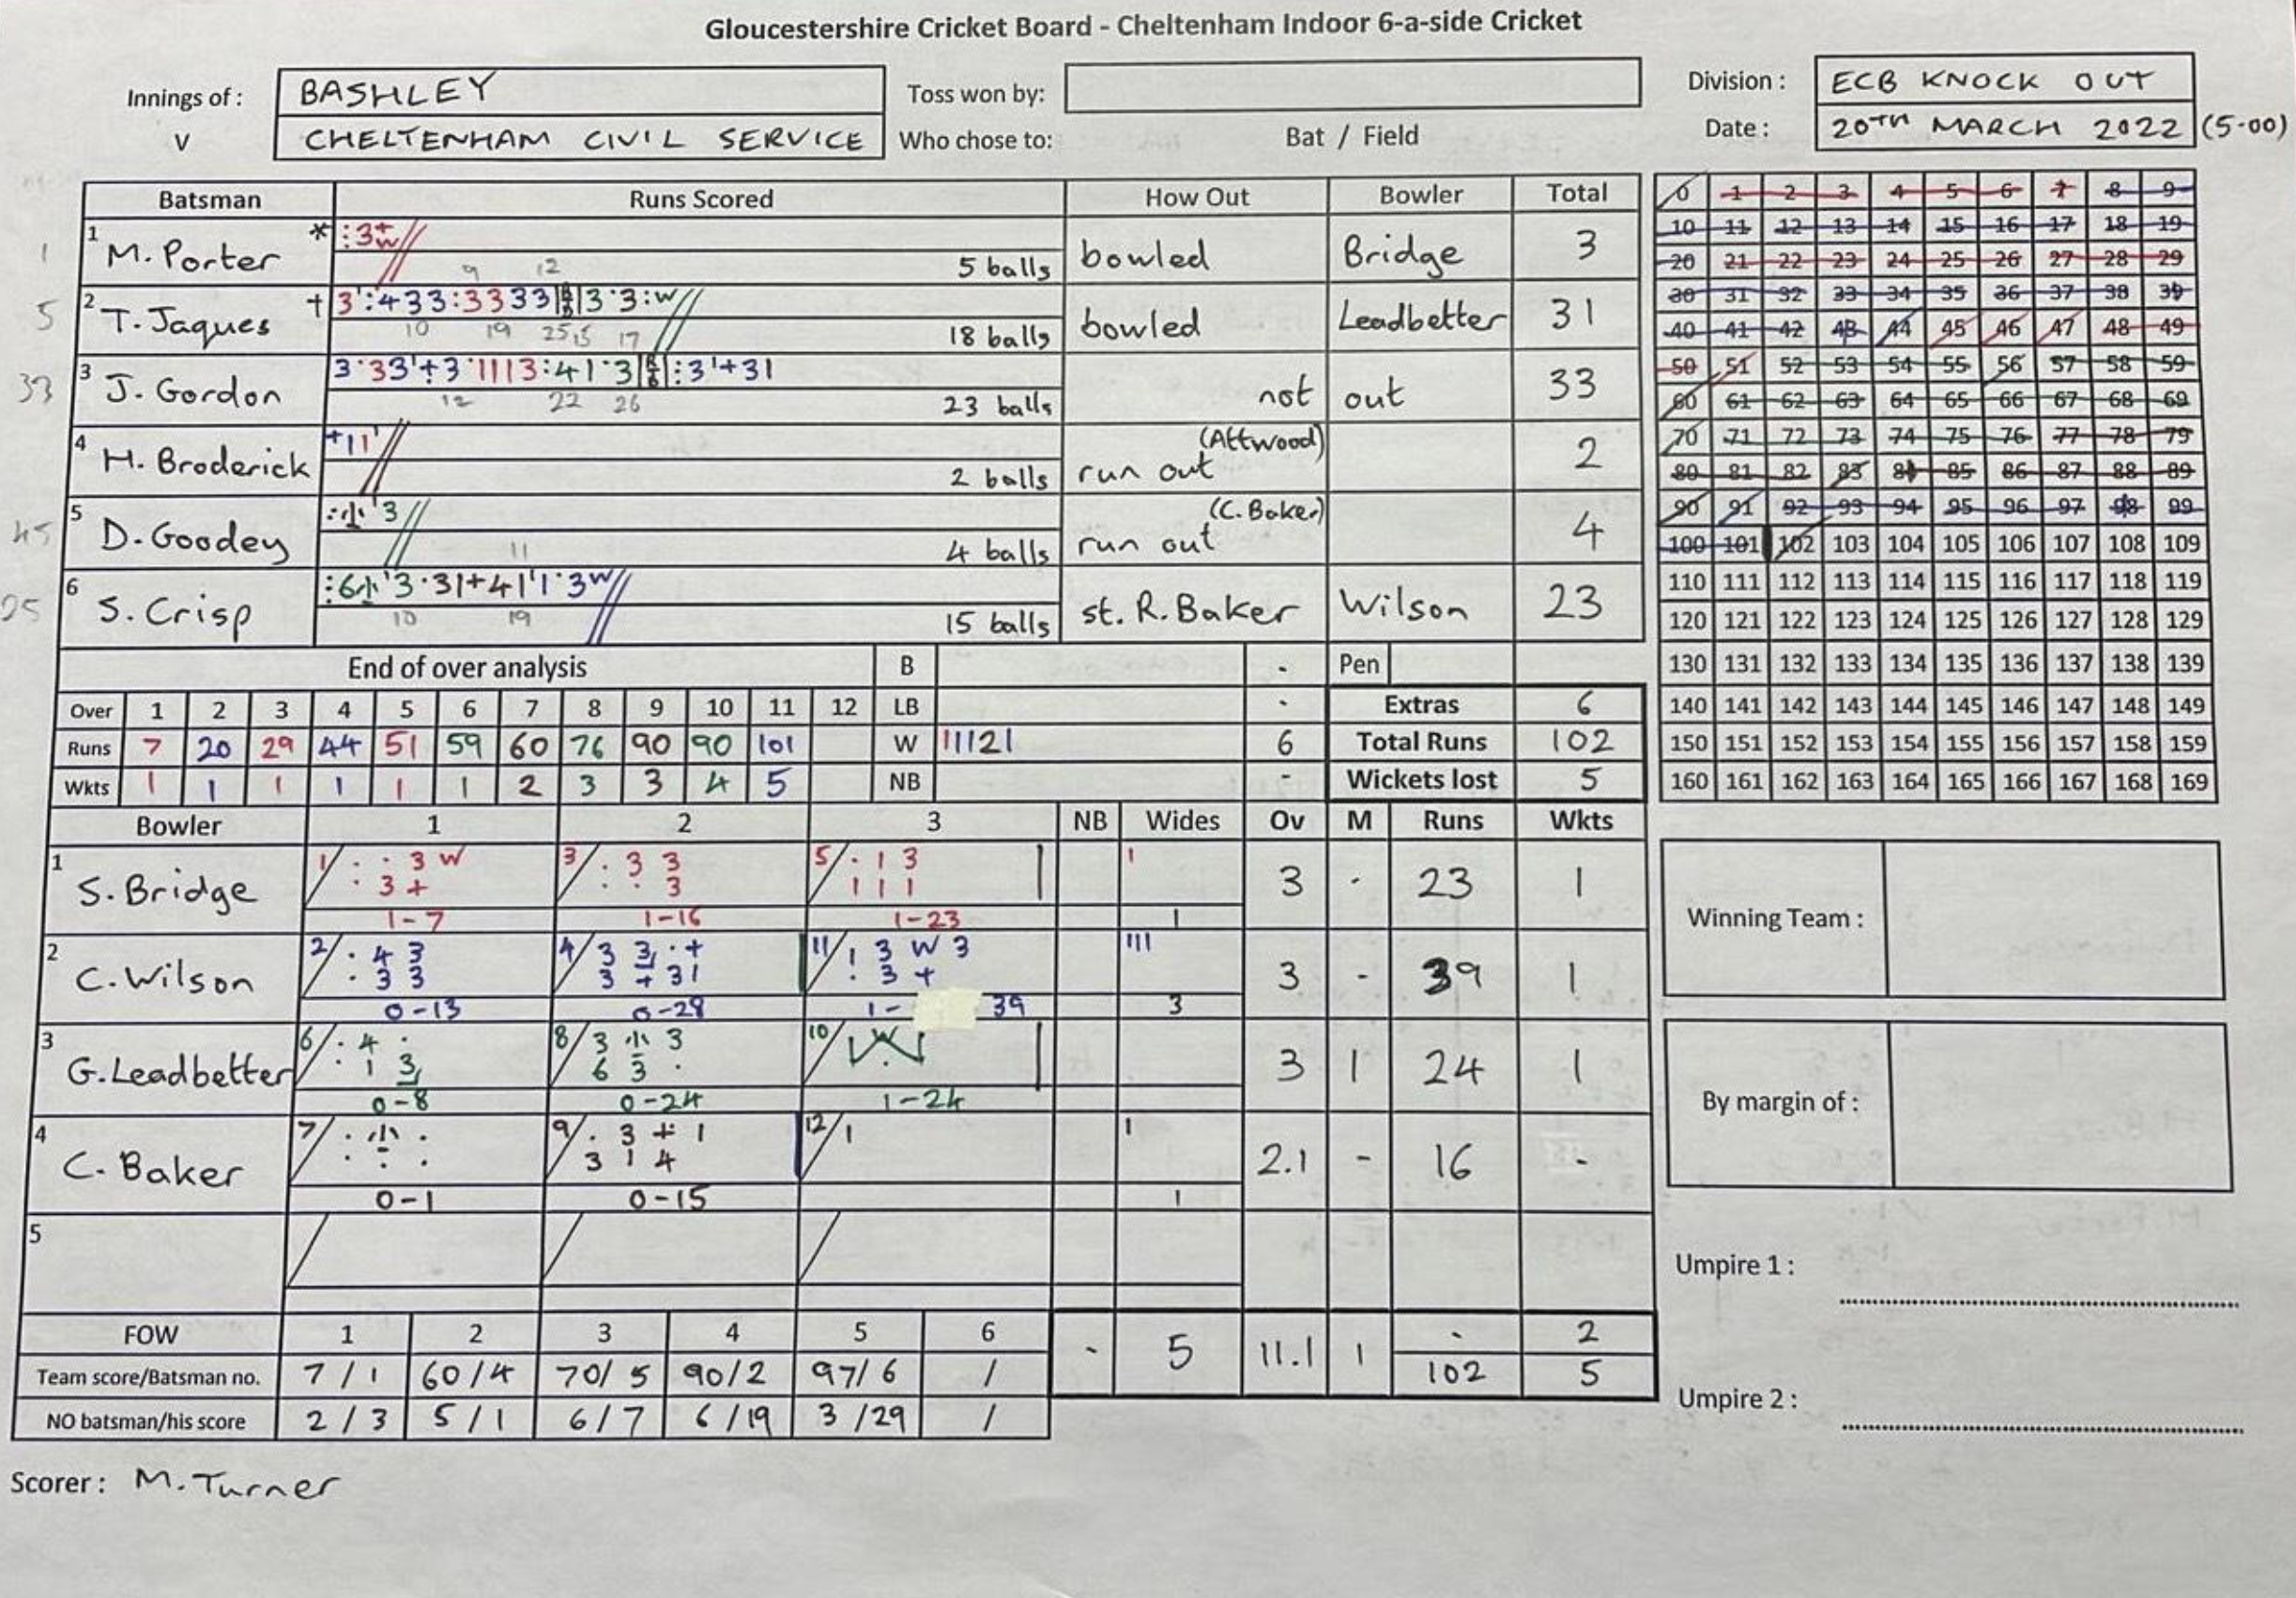 Gloucestershire Cricket Board - Cheltenham Indoor 6-a-side Cricket
Innings of : BASHLEY Toss won by: Division : ECB KNOCK OUT
V CHELTENHAM CIVIL SERVICE Who chose to: Bat / Field Date : 20TH MARCH 2022 (5-00)
Batsman Runs Scored How Out Bowler Total
1 M. Porter * 5 balls bowled Bridge 3
2 T. Jaques † 18 balls bowled Leadbetter 31
3 J. Gordon 23 balls not out 33
4 H. Broderick 2 balls run out (Attwood) 2
5 D. Goodey 4 balls run out (C. Baker) 4
6 S. Crisp 15 balls st. R. Baker Wilson 23
0 1 2 3 4 5 6 7 8 9
10 11 12 13 14 15 16 17 18 19
20 21 22 23 24 25 26 27 28 29
30 31 32 33 34 35 36 37 38 39
40 41 42 43 44 45 46 47 48 49
50 51 52 53 54 55 56 57 58 59
60 61 62 63 64 65 66 67 68 69
70 71 72 73 74 75 76 77 78 79
80 81 82 83 84 85 86 87 88 89
90 91 92 93 94 95 96 97 98 99
100 101 102 103 104 105 106 107 108 109
110 111 112 113 114 115 116 117 118 119
120 121 122 123 124 125 126 127 128 129
130 131 132 133 134 135 136 137 138 139
140 141 142 143 144 145 146 147 148 149
150 151 152 153 154 155 156 157 158 159
160 161 162 163 164 165 166 167 168 169
End of over analysis B - Pen
Over 1 2 3 4 5 6 7 8 9 10 11 12 LB - Extras 6
Runs 7 20 29 44 51 59 60 76 90 90 101 W 111121 6 Total Runs 102
Wkts 1 1 1 1 1 1 2 3 3 4 5 NB - Wickets lost 5
Bowler 1 2 3 NB Wides Ov M Runs Wkts
1 S. Bridge 1-7 1-16 1-23 1 3 - 23 1
2 C. Wilson 0-13 0-28 1- 39 3 3 - 39 1
3 G. Leadbetter 0-8 0-24 1-24 3 1 24 1
4 C. Baker 0-1 0-15 1 2.1 - 16 -
5
FOW 1 2 3 4 5 6 - 5 11.1 1 - 2
Team score/Batsman no. 7 / 1 60 / 4 70 / 5 90 / 2 97 / 6 / 102 5
NO batsman/his score 2 / 3 5 / 1 6 / 7 6 / 19 3 / 29 /
Winning Team :
By margin of :
Umpire 1 :
Umpire 2 :
Scorer : M. Turner